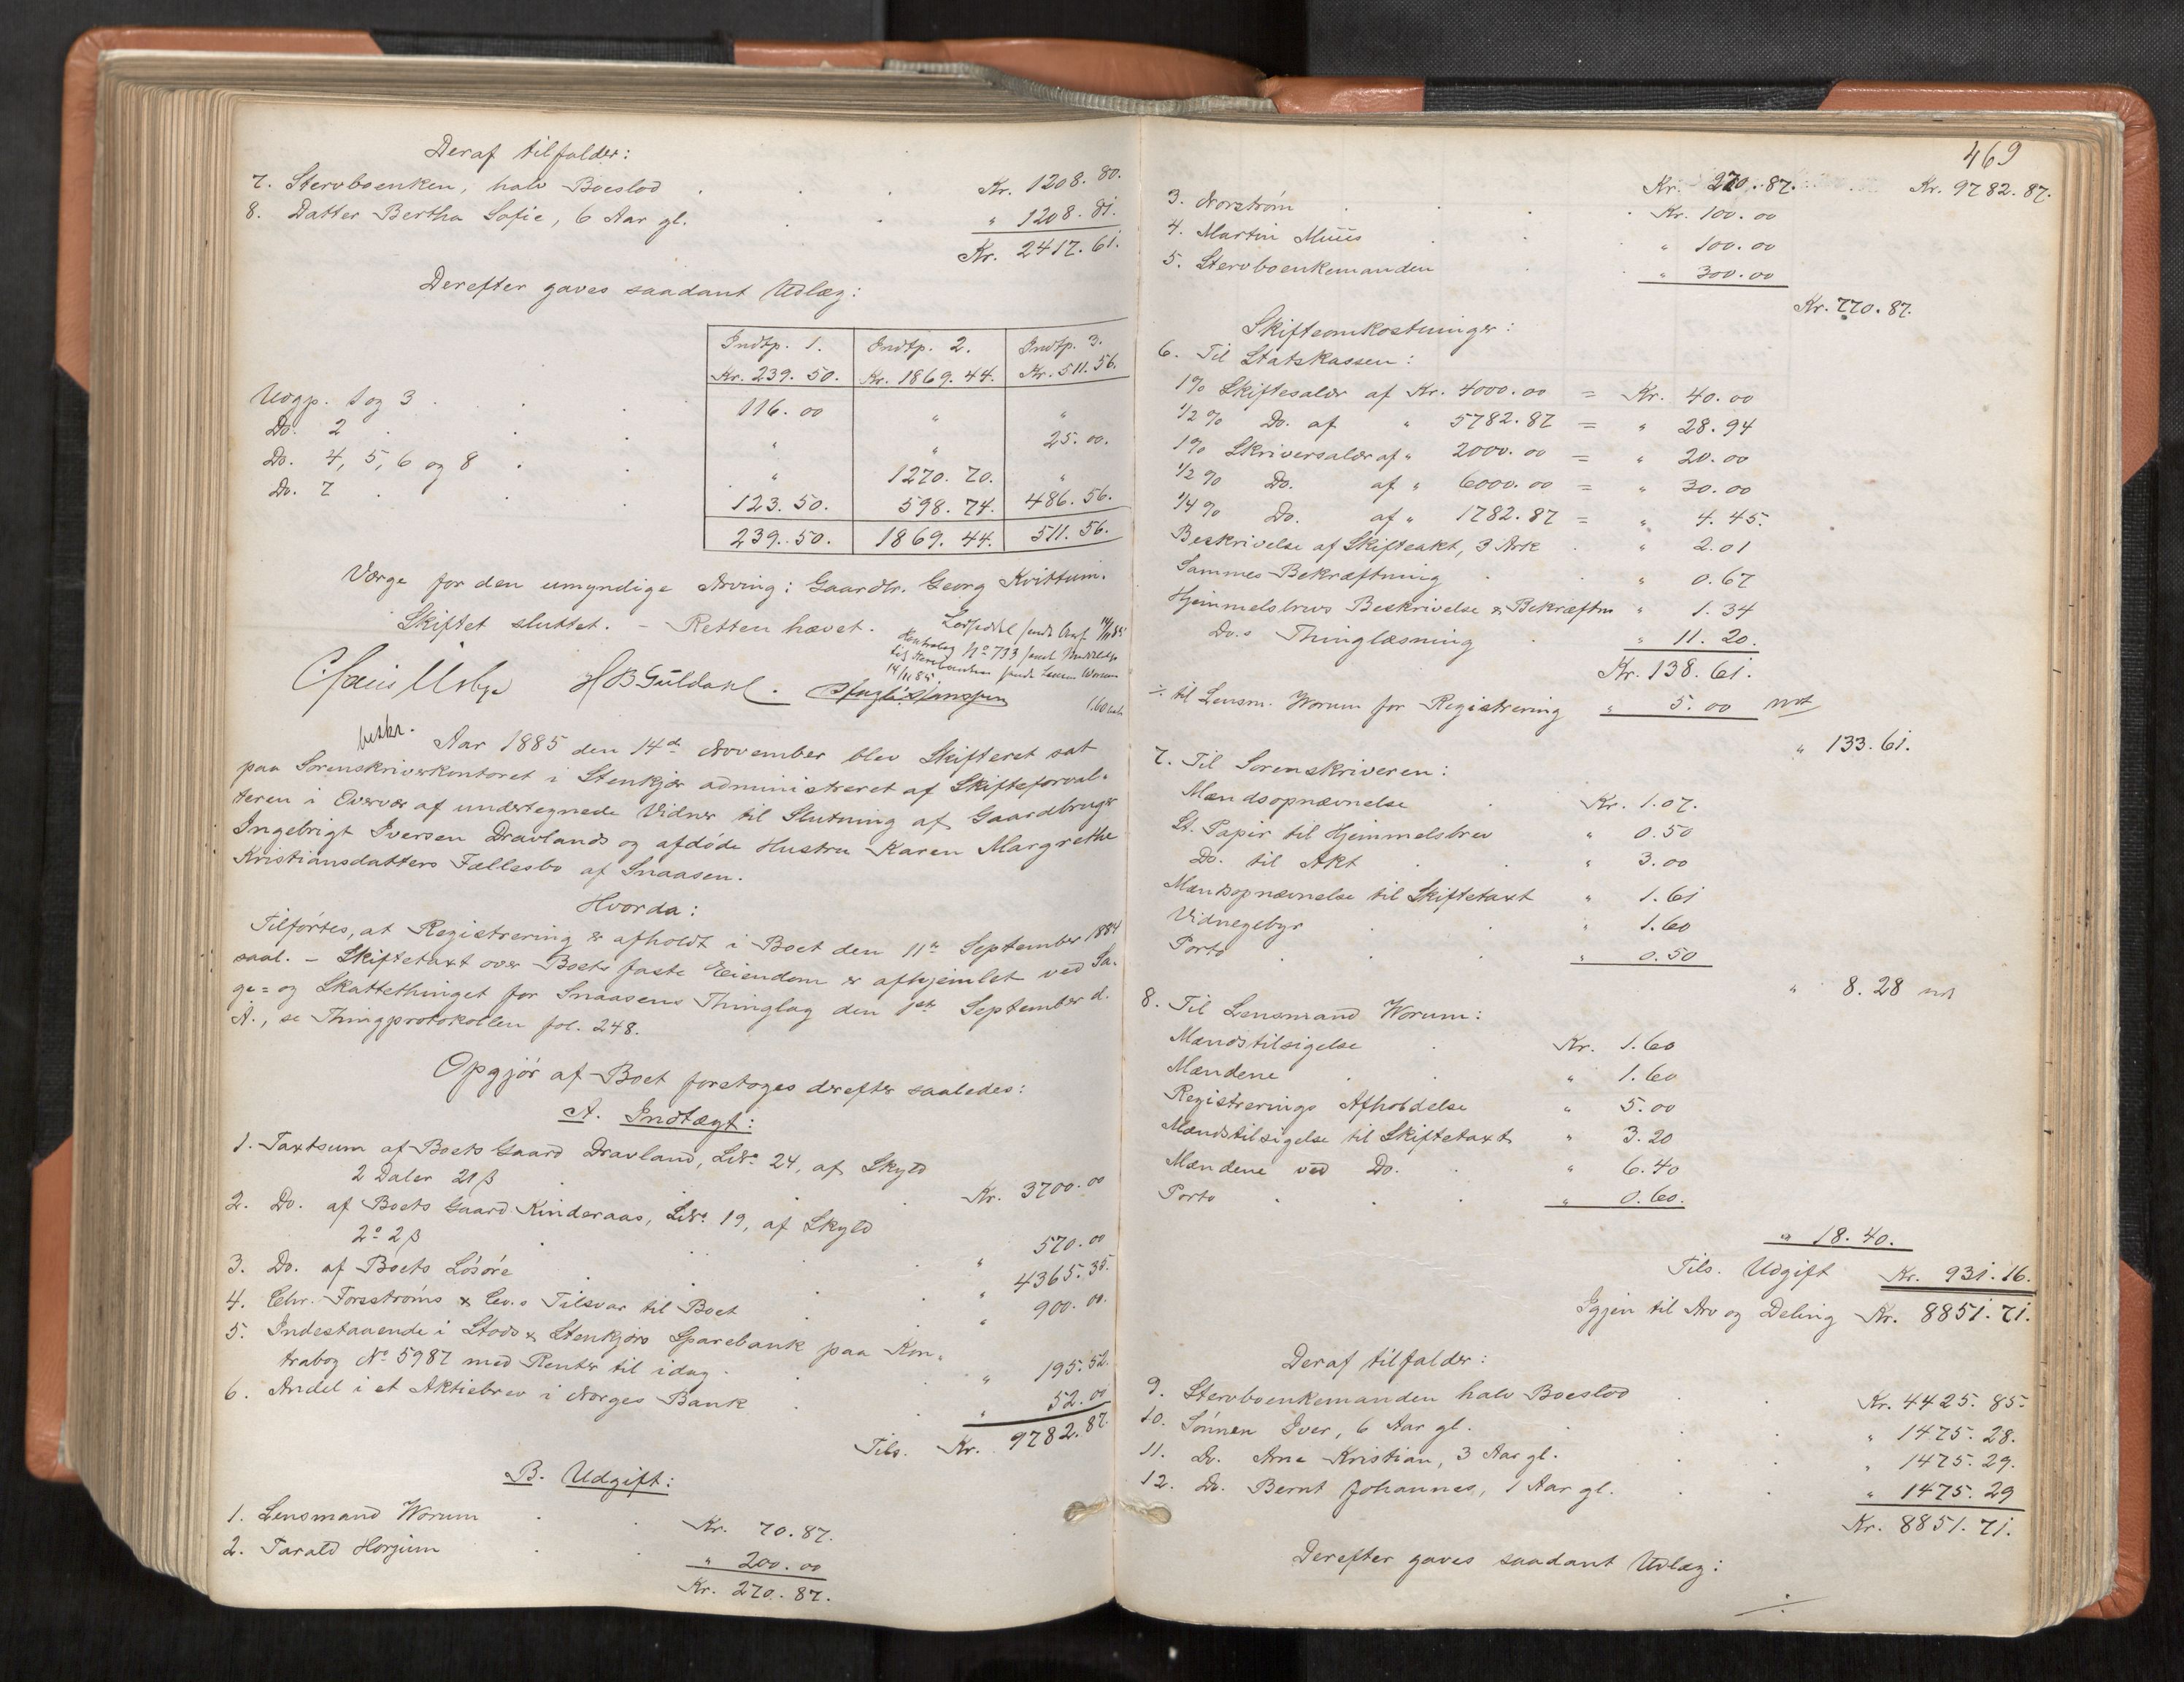 Deraf tilfalder:
7. Stervboenken, halv Boeslod . . . Kr. 1208. 80.
8. Datter Bertha Sofie, 6 Aar gl. . . " 1208. 81.
Kr. 2417. 61.
Derefter gaves saadant Udlæg:
Indtp. 1. Indtp. 2. Indtp. 3.
Kr. 239. 50. Kr. 1869. 44. Kr. 511. 56.
Udgp. 1 og 3 . . . 116. 00 " "
Do. 2 . . . " " 25. 00.
Do. 4, 5, 6 og 8 . . " 1270. 70. "
Do. 7 . . . 123. 50. 598. 74. 486. 56.
239. 50. 1869. 44. 511. 56.
Værge for den umyndige Arving: Gaardbr. Georg Kvittum.
Skiftet sluttet. – Retten hævet.
14/11 85
No 733
14/11 85
H B Guldahl.
1.60
beskr.
Aar 1885 den 14de November blev Skifteret sat
paa Sorenskriverkontoret i Stenkjær administreret af Skifteforval-
teren i Overvær af undertegnede Vidner til Slutning af Gaardbruger
Ingebrigt Iversen Dravlands og afdøde Hustru Karen Margrethe
Kristiansdatters Fællesbo af Snaasen.
Hvorda:
Tilførtes, at Registrering er afholdt i Boet den 11te September 1884
saal. – Skiftetaxt over Boets faste Eiendom er afhjemlet ved Sa-
ge= og Skattethinget for Snaasens Thinglag den 1ste September d.
A., se Thingprotokollen fol. 248.
Opgjør af Boet foretoges derefter saaledes:
A. Indtægt:
1. Taxtsum af Boets Gaard Dravland, LNo. 24, af Skyld
2 Daler 21 β . . . Kr. 3700. 00
2. Do. af Boets Gaard Kinderaas, LNo. 19, af Skyld
2 o 2 β . . . " 570. 00
3. Do. af Boets Løsøre . . . " 4365. 35.
4. Chr. Forsstrøms & Co.s Tilsvar til Boet . . " 900. 00.
5. Indestaaende i Stods & Stenkjærs Sparebank paa Kon-
trabog No 5987 med Renter til idag . . " 195. 52.
6. Andel i et Aktiebrev i Norges Bank . . " 52. 00
Tils. Kr. 9782. 87.
B. Udgift:
1. Lensmand Worum . . Kr. 70. 87.
2. Tarald Horjem . . " 200. 00
Kr. 270. 87.
469
Kr. 270. 87. Kr. 9782. 87.
3. Norstrøm . . . Kr. 100. 00
4. Martin Muus . . " 100. 00
5. Stervboenkemanden . . " 300. 00
Kr. 770. 87.
Skifteomkostninger:
6. Til Statskassen:
1% Skiftesalær af Kr. 4000. 00 = Kr. 40. 00
1/2 % Do. af " 5782. 87 = " 28. 94
1% Skriversalær af " 2000. 00 = " 20. 00
1/2 % Do. af " 6000. 00 = " 30. 00
1/4 % Do. af " 1782. 87 = " 4. 45.
Beskrivelse af Skifteakt, 3 Ark . " 2. 01
Sammes Bekræftning . " 0. 67
Hjemmelsbrevs Beskrivelse & Bekræftn " 1. 34
Do.s Thinglæsning " 11. 20.
Kr. 138. 61.
÷ til Lensm. Worum for Registrering " 5. 00 ndt
" 133. 61.
7. Til Sorenskriveren:
Mændsopnævnelse . Kr. 1. 07.
St. Papir til Hjemmelsbrev " 0. 50
Do. til Akt . . " 3. 00
Mændsopnævnelse til Skiftetaxt " 1. 61
Vidnegebyr . . " 1. 60
Porto . . . " 0. 50
" 8. 28 ndt
8. Til Lensmand Worum:
Mændstilsigelse . Kr. 1. 60
Mændene . . " 1. 60
Registrerings Afholdelse " 5. 00
Mændstilsigelse til Skiftetaxt " 3. 20
Mændene ved Do. . " 6. 40
Porto . . . " 0. 60.
" 18. 40.
Tils. Udgift Kr. 931. 16.
Igjen til Arv og Deling Kr. 8851. 71.
Deraf tilfalder:
9. Stervboenkemanden halv Boeslod . Kr. 4425. 85.
10. Sønnen Iver, 6 Aar gl. . . . " 1475. 28.
11. Do. Arne Kristian, 3 Aar gl. . . " 1475. 29.
12. Do. Bernt Johannes, 1 Aar gl. . . " 1475. 29
Kr. 8851. 71.
Derefter gaves saadant Udlæg:
./.